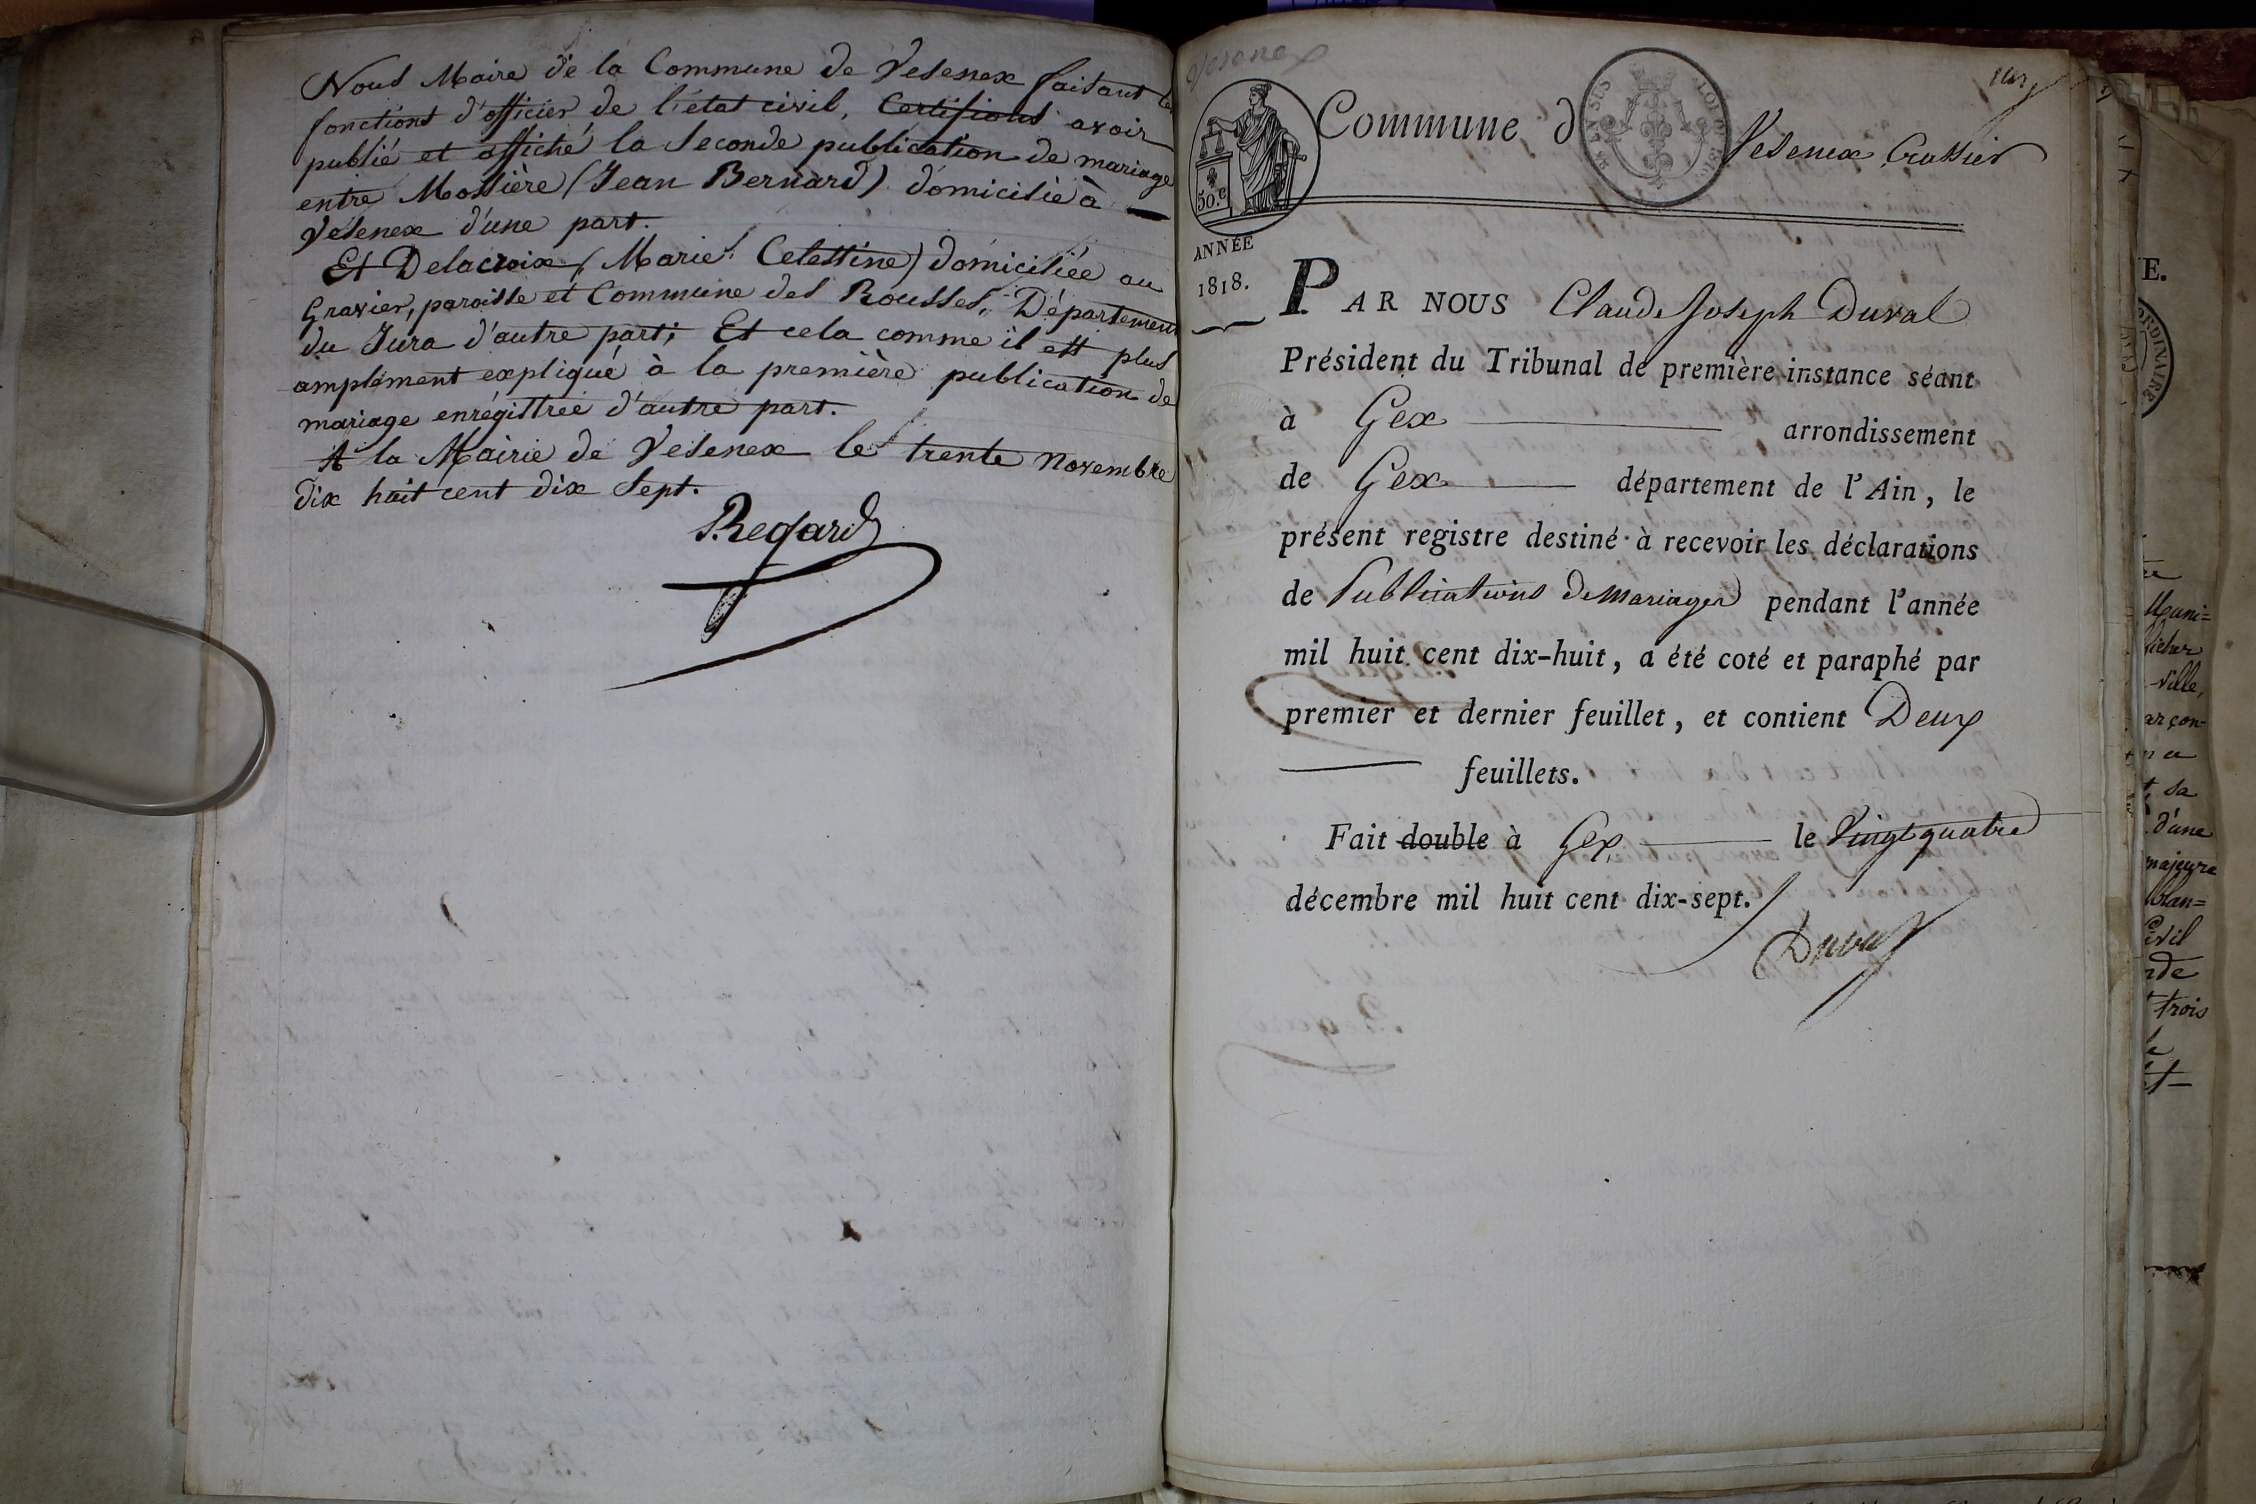 Nous Maire de la Commune de Vesenex faisant les
fonctions d'officier de l'état civil, Certifions avoir
publié et affiché la seconde publication de mariage
entre Mossière (Jean Bernard) domicilié à
Vesenex d'une part.
Et Delacroix (Marie Celestine) domiciliée au
Gravier, paroisse et Commune des Rousses, Département
du Jura d'autre part; Et cela comme il est plus
amplement expliqué à la première publication de
mariage enrégistrée d'autre part.
A la Mairie de Vesenex le trente novembre
dix huit cent dix sept.
Regard
Vesenex
Commune d
Vesenex Crassier
50.C
ANNÉE
1818.
PAR NOUS Claude Joseph Duval
Président du Tribunal de première instance séant
à Gex arrondissement
de Gex département de l'Ain, le
présent registre destiné à recevoir les déclarations
de Publications de mariages pendant l'année
mil huit cent dix-huit, a été coté et paraphé par
premier et dernier feuillet, et contient Deux
feuillets.
Fait double à Gex le Vingt quatre
décembre mil huit cent dix-sept.
Duval
E.
Muni=
ville,
arçon-
sa
d'une
majeure
blan=
Civil
trois